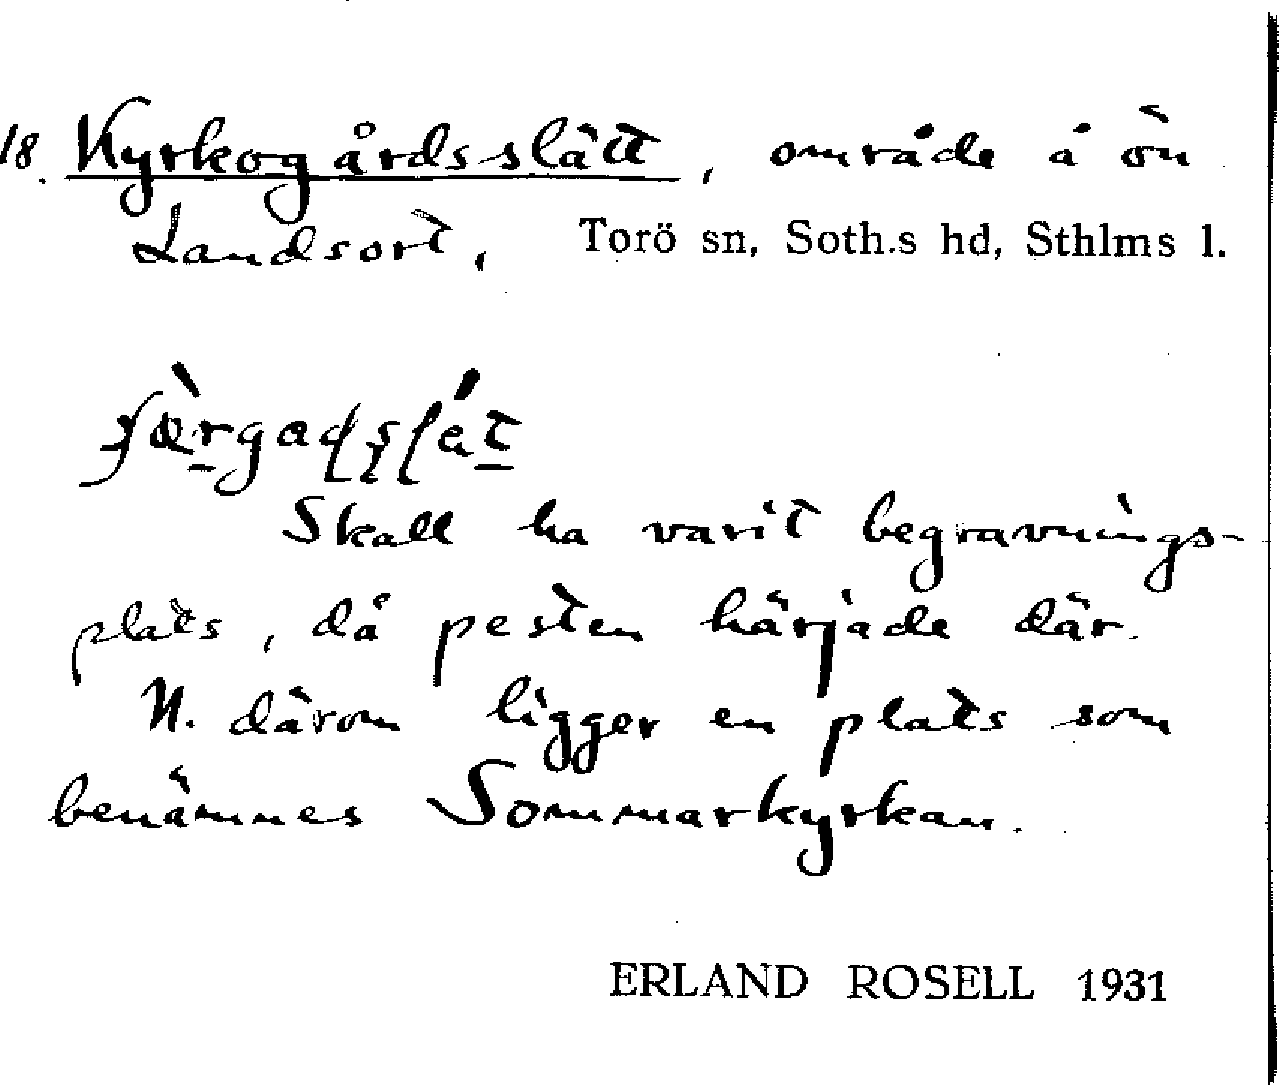 18. Kyrkogårdsslätt, område å ön
Landsort, Torö sn, Soth.s hd, Sthlms l.
Skall ha varit begravnings-
plats, då pesten härjade där.
N. därom ligger en plats som
benämnes Sommarkyrkan.
ERLAND ROSELL 1931